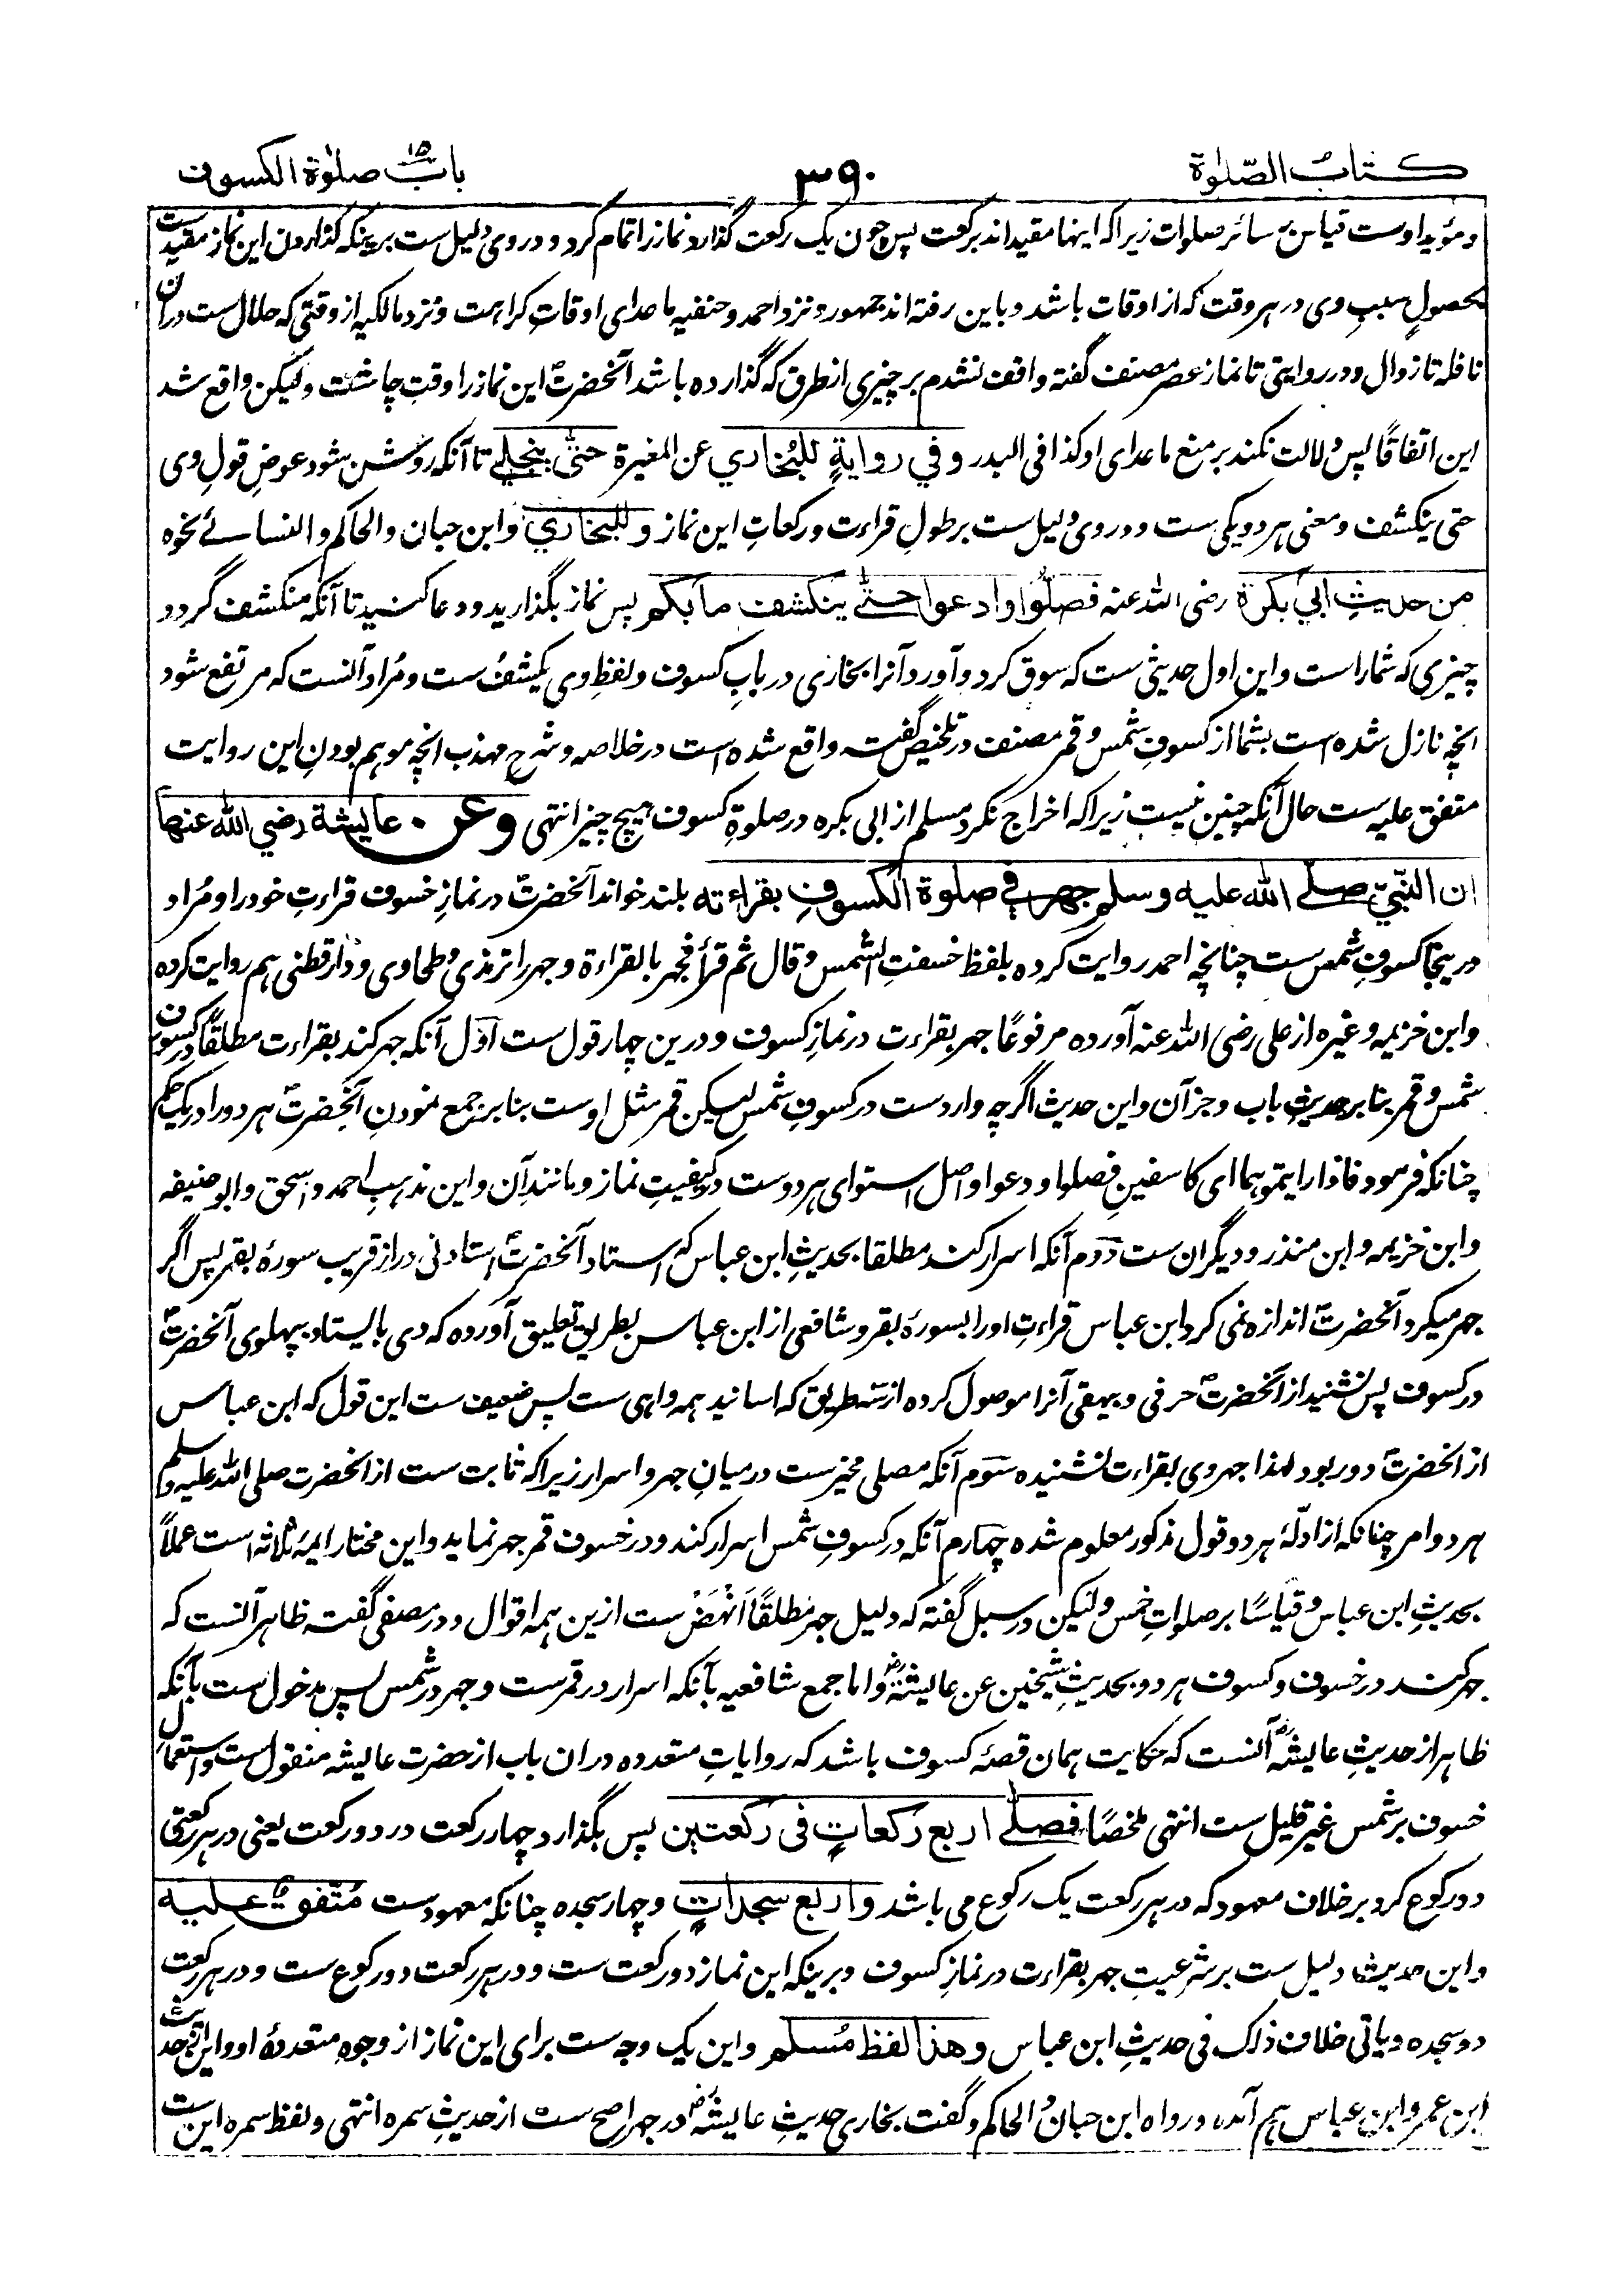 كتاب الصّلوٰة
٣٩٠
باب ١٥ صلوٰة الكسوف
ومؤید اوست قیاس بر سائر صلوات زیراکه اینها مقید اند برکعت پس چون یک رکعت گذارد نماز را تمام کرد و دروی دلیل ست برینکه گذاردن این نماز مقیدست
بحصولِ سببِ وی در هر وقت که از اوقات باشد و باین رفته اند جمهور و نزد احمد و حنفیه ماعدای اوقاتِ کراهت و نزد مالکیه از وقتی که حلال ست دران
نافله تا زوال و در روایتی تا نماز عصر مصنف گفته واقف نشدم بر چیزی از طرق که گذارده باشد آنحضرتؐ این نماز را وقتِ چاشت ولیکن واقع شد
این اتفاقًا پس دلالت نکند بر منع ماعدای او کذا فی البدر وفي روايةٍ للبُخاري عن المغيرة حتّٰى ينجلے تا آنکه روشن شود عوضِ قولِ وی
حتی ینکشف و معنی هر دو یکی ست و دروی دلیل ست بر طولِ قراءت و رکعاتِ این نماز وللبخاري وابن حبان والحاکم والنسائے نحوه
من حديثِ ابي بكرة رضی اللّٰه عنه فصلّوا وادعوا حتّٰے ينكشف ما بكم پس نماز بگذارید و دعا کنید تا آنکه منکشف گردد
چیزی که شمارا است و این اول حدیثی ست که سوق کرد و آورد آنرا بخاری در بابِ کسوف و لفظِ وی یکشفُ ست و مُراد آنست که مرتفع شود
انچه نازل شده است بشما از کسوفِ شمس و قمر مصنف در تلخیص گفته واقع شده است در خلاصه و شرحِ مهذب انچه موهم بودنِ این روایت
متفق علیه ست حال آنکه چنین نیست زیراکه اخراج نکرد مسلم از ابی بکره در صلوةِ کسوف هیچ چیز انتهی وعن عايشة رضي الله عنها
ان النّبيّ صلے الله عليه وسلم جهر في صلوة الكسوفِ بقراءته بلند خواند آنحضرتؐ در نمازِ خسوف قراءتِ خود را و مُراد
درینجا کسوفِ شمس ست چنانچه احمد روایت کرده بلفظ خسفتِ الشمس و قال ثم قرأ فجهر بالقراءة و جهر را ترمذی و طحاوی و دارقطنی هم روایت کرده
وابن خزیمه و غیره از علی رضی اللّٰه عنه آورده مرفوعًا جهر بقراءت در نمازِ کسوف و درین چهار قول ست اوّل آنکه جهر کند بقراءت مطلقًا در کسوف
شمس و قمر بنا بر حدیثِ باب و جز آن و این حدیث اگرچه وارد ست در کسوفِ شمس لیکن قمر مثل اوست بنا بر جمع نمودنِ آنحضرتؐ هر دو را در یک حکم
چنانکه فرمود فاذا رایتموهما ای کاسفینِ فصلوا و دعوا و اصل استوای هر دوست در کیفیتِ نماز و مانندِ آن و این مذهبِ احمد و اسحق و ابو حنیفه
وابن خزیمه وابن منذر و دیگران ست دوم آنکه اسرار کند مطلقا بحدیثِ ابن عباس که استاد آنحضرتؐ استادنی دراز قریب سورهٔ بقر پس اگر
جهر میکرد آنحضرتؐ اندازه نمی کرد ابن عباس قراءتِ او را بسورهٔ بقر و شافعی از ابن عباس بطریق تعلیق آورده که وی بایستاد بپهلوی آنحضرتؐ
در کسوف پس نشنید از آنحضرتؐ حرفی و بیهقی آنرا موصول کرده از سه طریق که اسانید همه واهی ست پس ضعیف ست این قول که ابن عباس
از آنحضرتؐ دور بود لهذا جهر وی بقراءت نشنیده سوم آنکه مصلی مخیرست در میانِ جهر و اسرار زیراکه ثابت ست از آنحضرت صلی اللّٰه علیه وسلم
هر دو امر چنانکه از ادلّهٔ هر دو قول مذکور معلوم شده چهارم آنکه در کسوفِ شمس اسرار کند و در خسوف قمر جهر نماید و این مختار ایمهٔ ثلاثه است عملاً
بحدیثِ ابن عباس و قیاسًا بر صلواتِ خمس ولیکن در سبل گفته که دلیل جهر مطلقًا اَنهَضْ ست ازین همه اقوال و در مصفی گفت ظاهر آنست که
جهر کند در خسوف و کسوف هر دو بحدیثِ شیخین عن عایشةؓ و اما جمع شافعیه بآنکه اسرار در قمرست و جهر در شمس پس مدخول ست بآنکه
ظاهر از حدیثِ عایشهؓ آنست که حکایت همان قصهٔ کسوف باشد که روایاتِ متعدده دران باب از حضرت عایشه منقول است و استعمالِ
خسوف بر شمس غیر قلیل ست انتهی ملخصًا فصلّٰے اربع ركعاتٍ فى ركعتين پس بگذارد چهار رکعت در دو رکعت یعنی در هر رکعتی
دو رکوع کرد بر خلاف معهود که در هر رکعت یک رکوع می باشد واربع سجداتٍ و چهار سجده چنانکه معهودست مُتفقٌ عليه
و این حدیث دلیل ست بر شرعیتِ جهر بقراءت در نمازِ کسوف و برینکه این نماز دو رکعت ست و در هر رکعت دو رکوع ست و در هر رکعت
دو سجده و یاتی خلاف ذلک فی حدیثِ ابن عباس وهذا لفظ مُسلم و این یک وجه ست برای این نماز از وجوهِ متعددهٔ او و این حدیث
ابن عمر و ابن عباس هم آمده و رواه ابن حبان والحاکم و گفت بخاری حدیثِ عایشهؓ در جهر اصح ست از حدیثِ سمره انتهی و لفظ سمره این ست